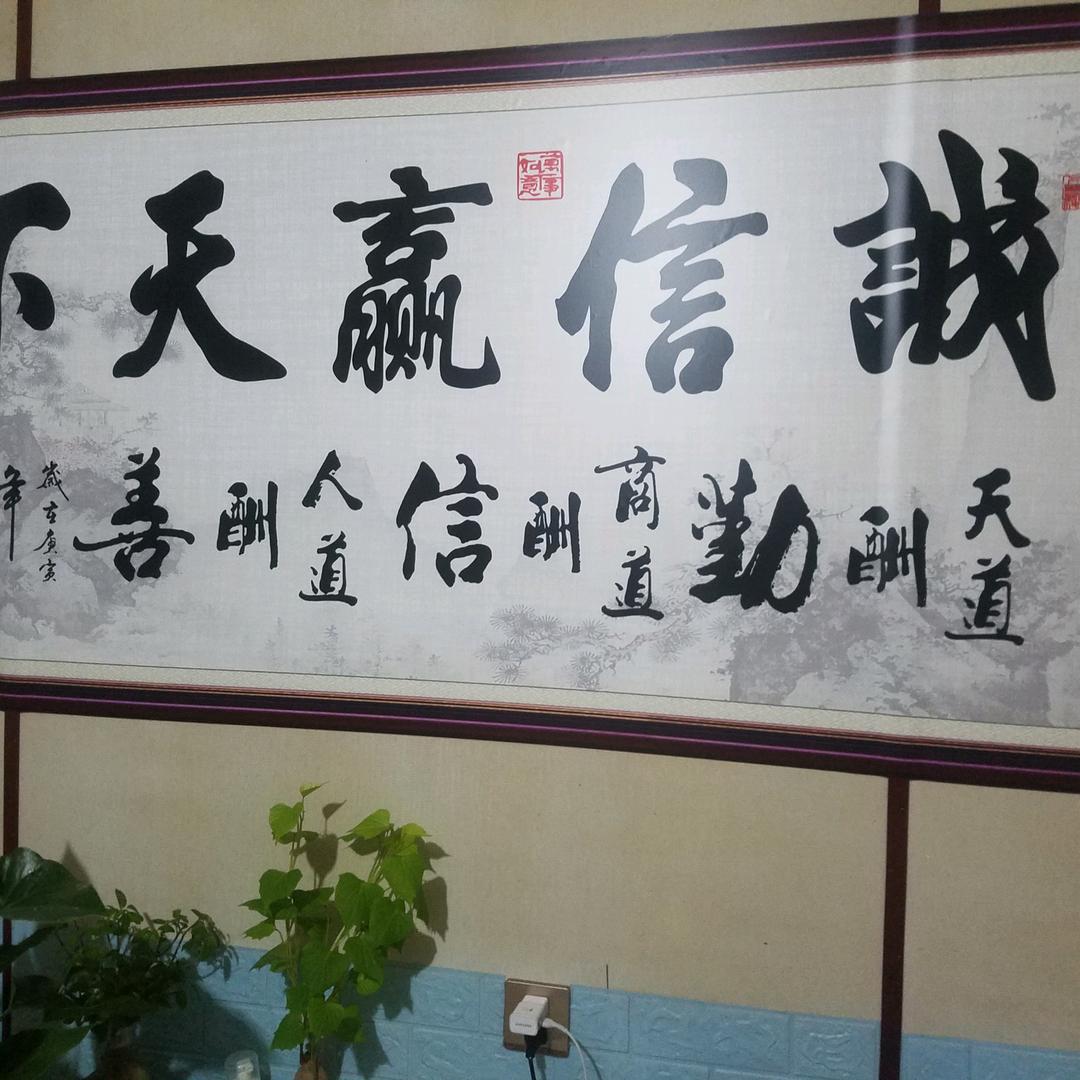 誠信赢天下
天道酬勤商道酬信人道酬善
歲在庚寅年
萬事如意